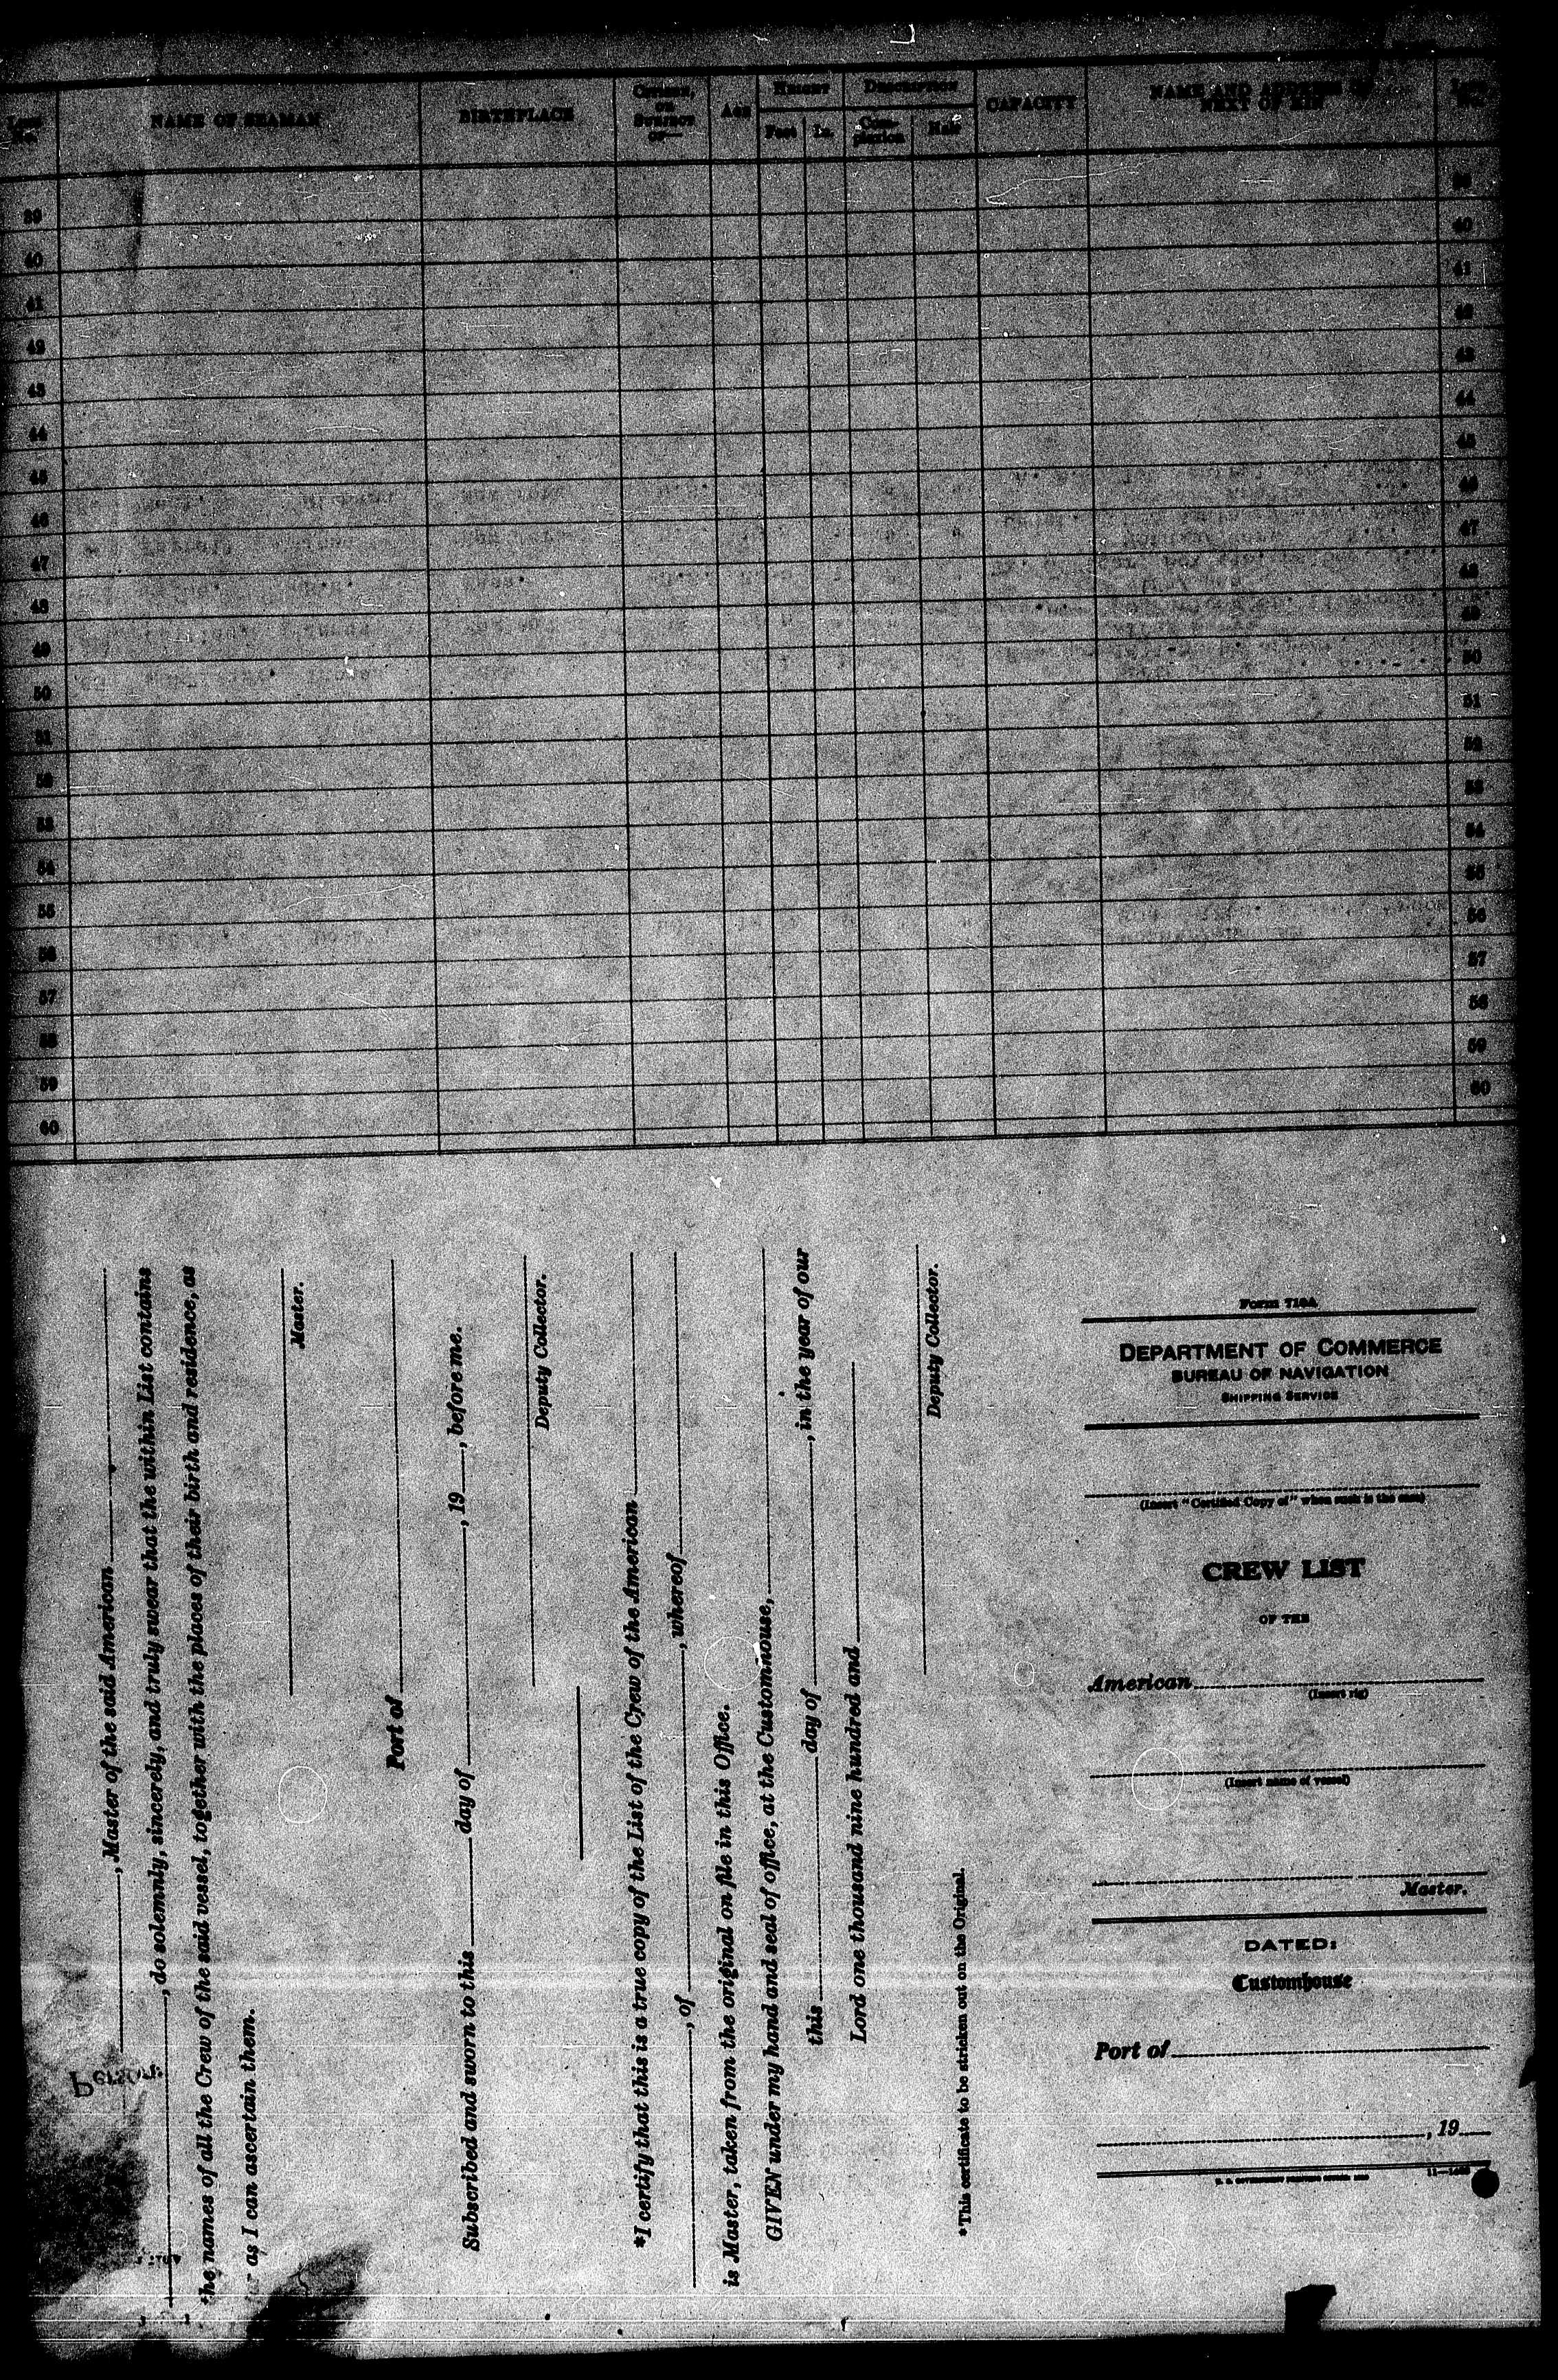 Line No. NAME OF SEAMAN BIRTHPLACE CITIZEN, OR SUBJECT OF— AGE HEIGHT Feet In. DESCRIPTION Com-plexion Hair CAPACITY NAME AND ADDRESS OF NEXT OF KIN Line No.
39 39
40 40
41 41
42 42
43 43
44 44
45 45
46 46
47 47
48 48
49 49
50 50
51 51
52 52
53 53
54 54
55 55
56 56
57 57
58 58
59 59
60 60
, Master of the said American
, do solemnly, sincerely, and truly swear that the within List contains
the names of all the Crew of the said vessel, together with the places of their birth and residence, as
as I can ascertain them.
Master.
Port of
Subscribed and sworn to this day of , 19 , before me.
Deputy Collector.
*I certify that this is a true copy of the List of the Crew of the American
, of , whereof
is Master, taken from the original on file in this Office.
GIVEN under my hand and seal of office, at the Customhouse,
this day of , in the year of our
Lord one thousand nine hundred and
Deputy Collector.
*This certificate to be stricken out on the Original.
Form 710A
DEPARTMENT OF COMMERCE
BUREAU OF NAVIGATION
SHIPPING SERVICE
(Insert "Certified Copy of" when such is the case)
CREW LIST
OF THE
American
(Insert rig)
(Insert name of vessel)
Master.
DATED:
Customhouse
Port of
, 19